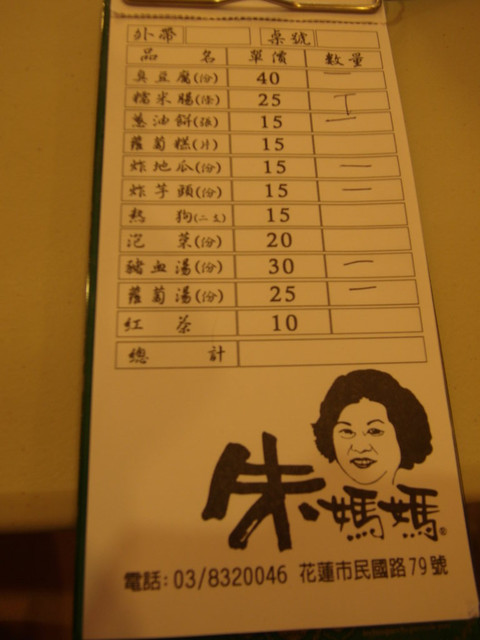 外帶 桌號
品名 單價 數量
臭豆腐(份) 40 一
糯米腸(條) 25 丅
蔥油餅(張) 15 一
蘿蔔糕(片) 15
炸地瓜(份) 15 一
炸芋頭(份) 15 一
熱狗(二支) 15
泡菜(份) 20
豬血湯(份) 30 一
蘿蔔湯(份) 25 一
紅茶 10
總計
朱媽媽®
電話：03/8320046 花蓮市民國路79號